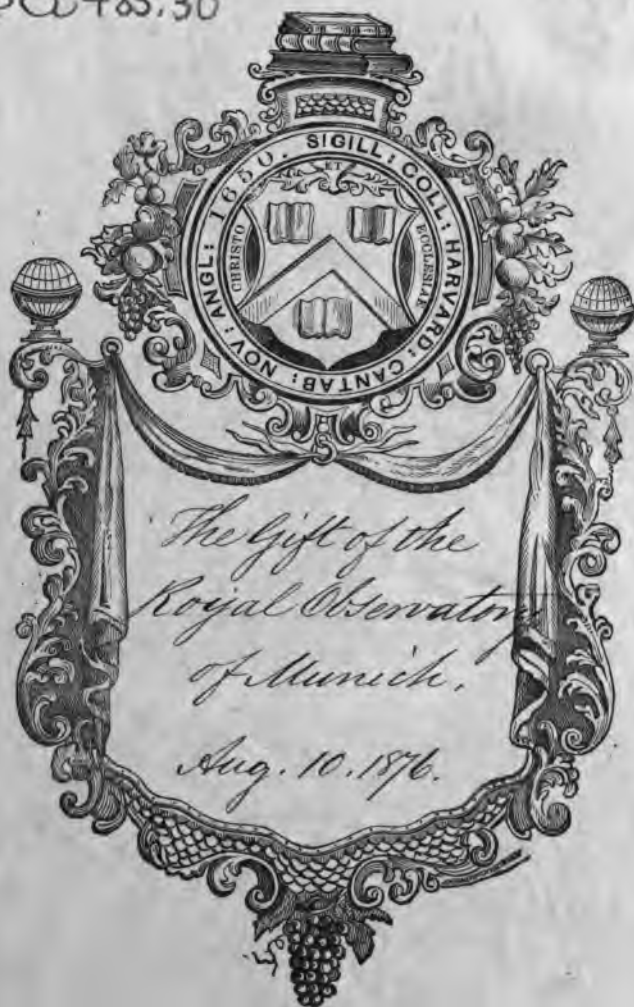 SIGILL: COLL: HARVARD: CANTAB: NOV: ANGL: 1650.
ET
CHRISTO
ECCLESIAE
The Gift of the
Royal Observatory
of Munich.
Aug. 10. 1876.